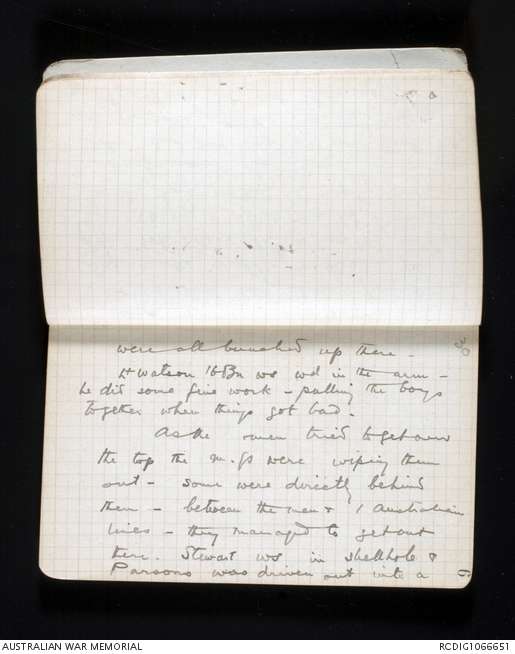 30
were all bunched up there -
Lt Watson 16 Bn ws wd in the arm -
he did some fine work - pulling the boys
together when things got bad.
As the men tried to get over
the top the m.gs were wiping them
out - some were directly behind
them - between the men & / Australian
lines - they managed to get out
there. Stewart ws in shellhole &
Parsons was driven out into a
AUSTRALIAN WAR MEMORIAL
RCDIG1066651